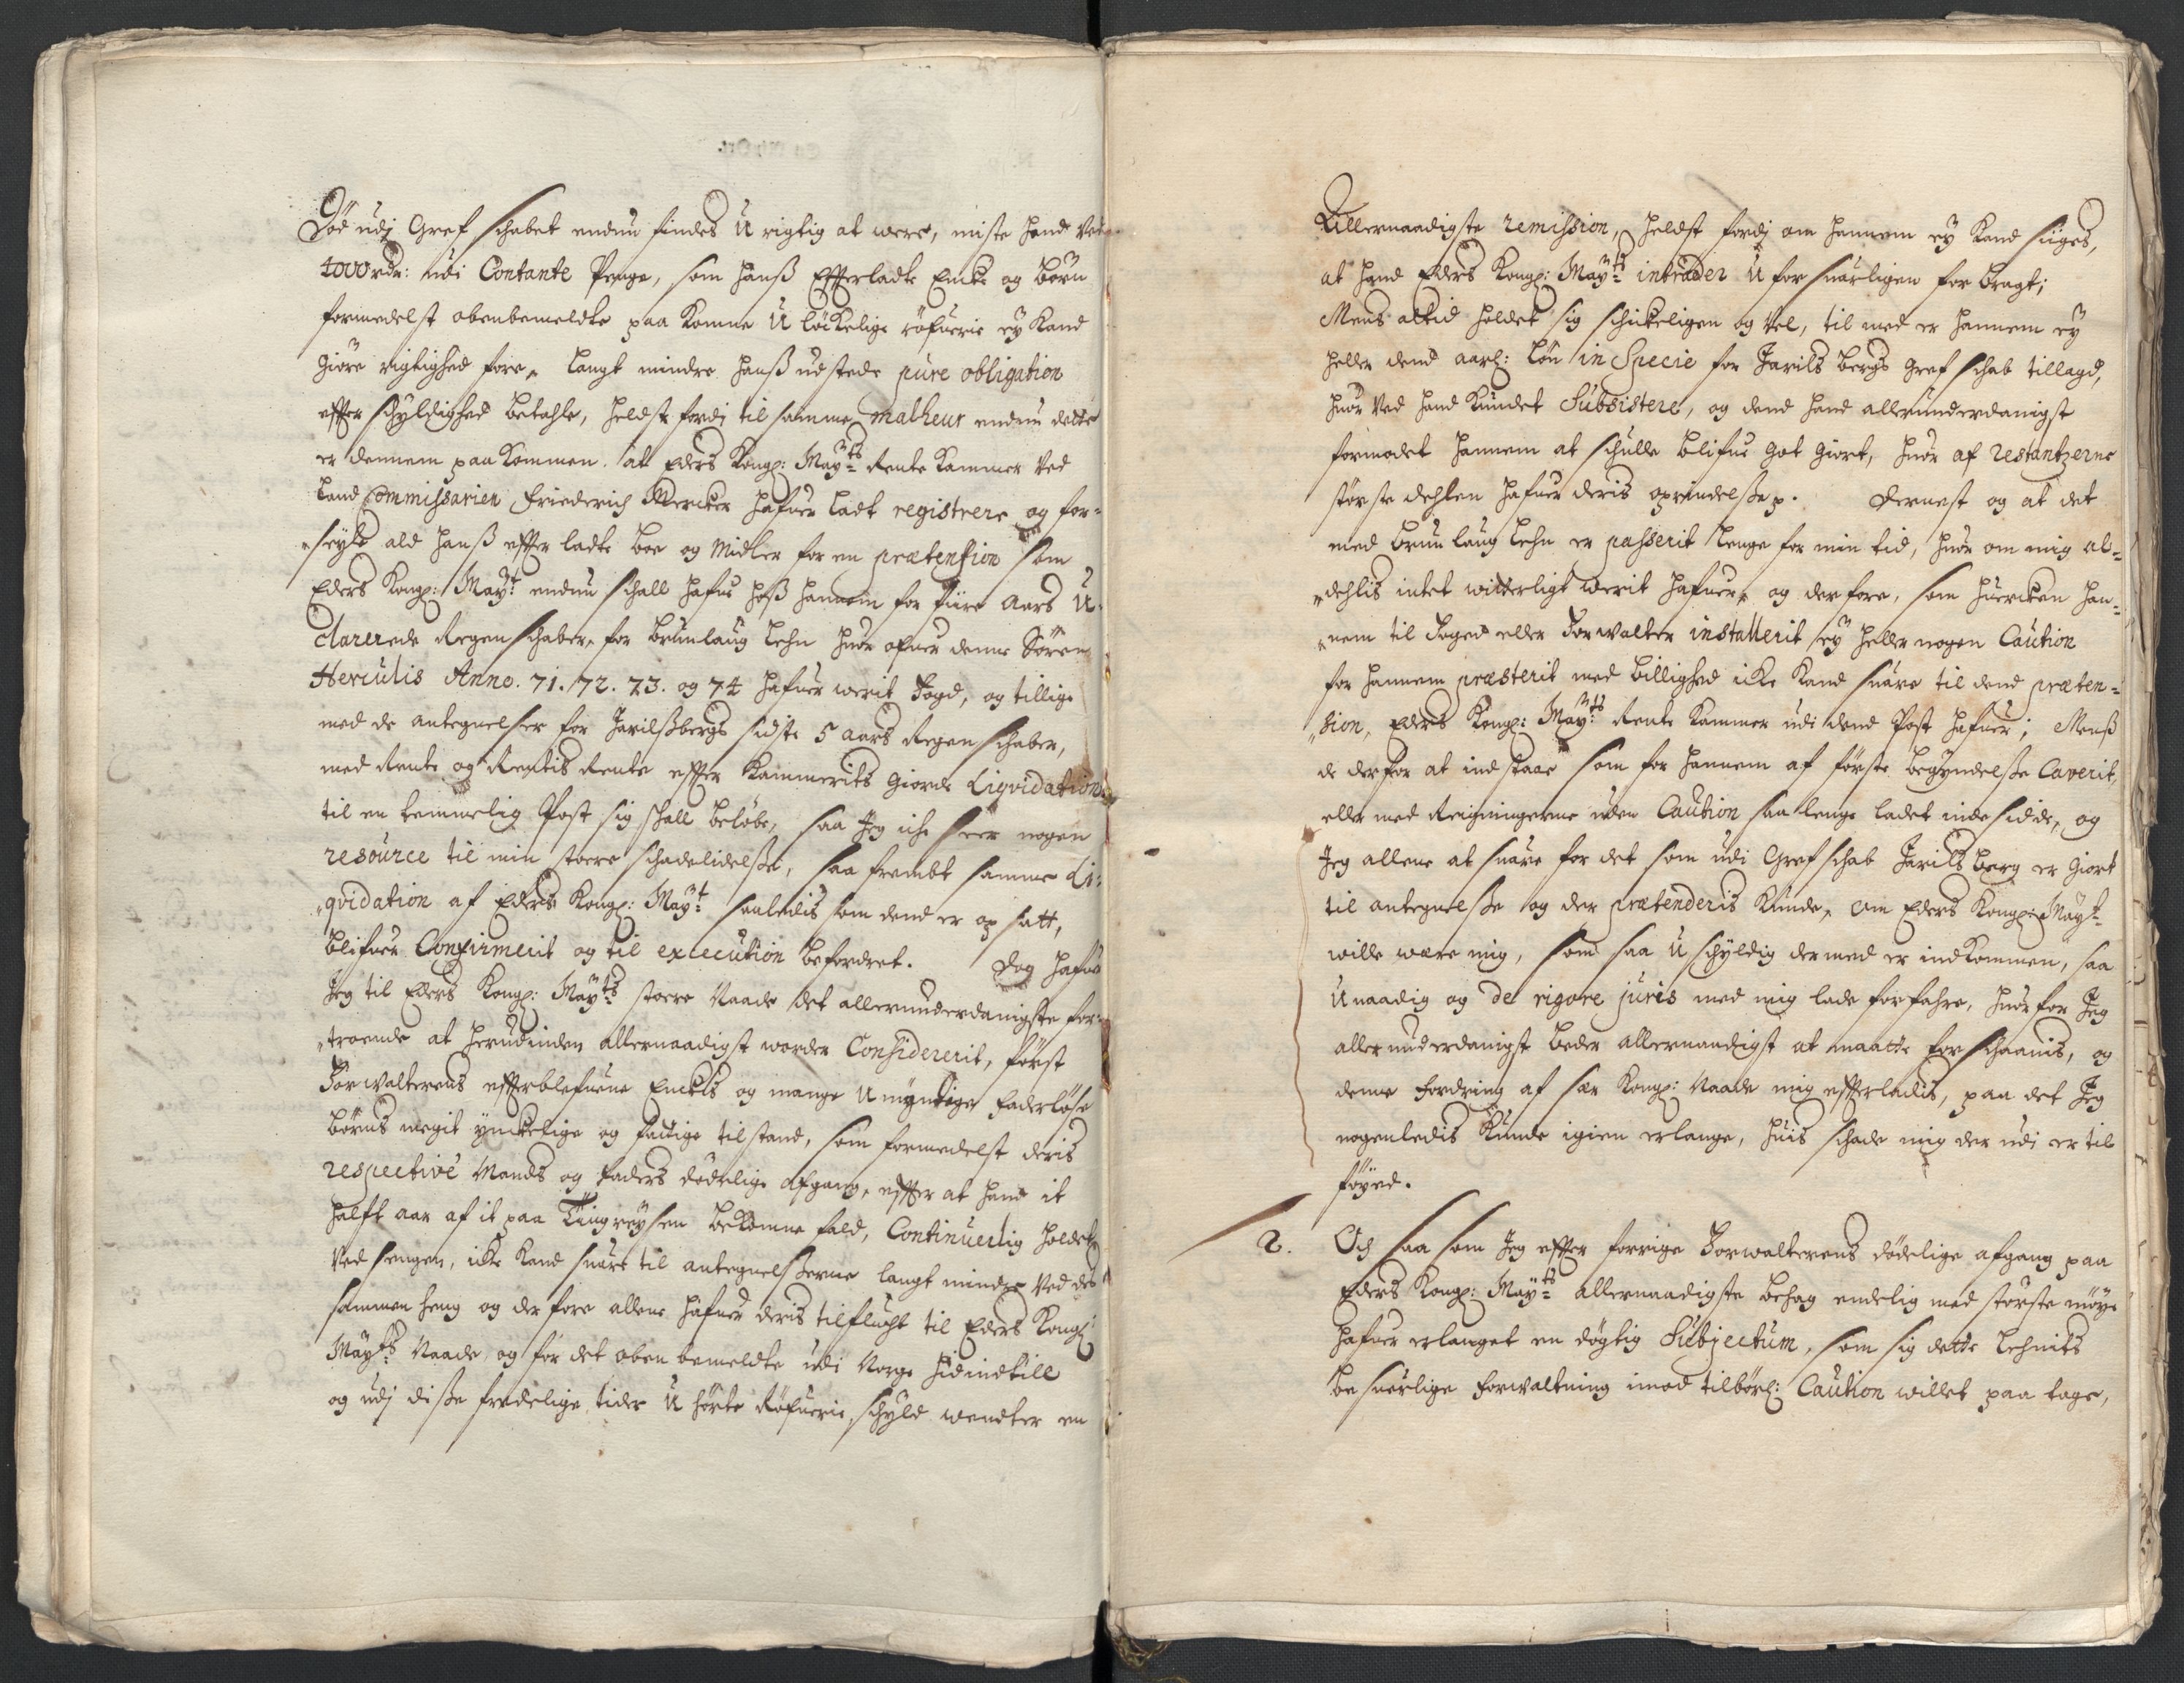 Død udj Gref schabet endnu findes U rigtig at were, miste hand Ved
4000 rdr: udi Contante Penge, som hanß Efterladte Encke og børn
formedelst obenbemeldte paa komne U løckelige röfverie eÿ kand
giöre rigtighed fore, langt mindre hanß udstede pure obligation
efter schÿldighed betahle, heldst fordi til samme malheur endnu dette
er dennem paa kommen. at Eders Kongl: Maÿts Rente Kammer ved
Land Commissarien Friederich Mercker hafuer ladt registrere og for-
seÿle ald hanß efter ladte boe og Midler for en prætention som
Eders Kongl: Maÿt endnu schall hafue hoß hannem for fiire Aars U-
clarerede Regenschaber, for brunlaug Lehn huor ofuer denne Sören
Herculis Anno. 71. 72. 73. og 74 hafuer werit Fogd, og tillige
med de antegnelser for Jarilßbergs sidste 5 aars Regenschaber,
med Rente og Rentis Rente efter Kammerits giorde Liqvidation
til en temmelig Post sig schall belöbe, saa Jeg iche seer nogen
resource til min store schadelidelße, saa frembt samme Li-
qvidation af Eders Kongl: Maÿt saaledis som dend er op satt,
blifuer Confirmerit og til execution befordret. Dog hafuer
Jeg til Eders Kongl: Maÿts store Naade det allerunderdanigste for-
troende at herudinden allernaadigst worder Considererit, först
Forwalterens efterblefuene Enckis og mange U mÿndige faderlöse
börns megit ÿnckelige og fattige tilstand, som formedelst deris
respective Mands og Faders dödelige afgang, efter at hand it
halft aar af it paa Tingreÿsen bekomne fald, Continuerlig holdt
Ved sengen, icke kand suare til antegnelßerne langt mindre Ved des
sammenheng og der fore allene hafuer deris tilflucht til Eders Kongl:
Maÿts Naade, og for det oben bemeldte udi Norge hidindtill
og udj diße fredelige tider U hörte Röfuerie, schÿld wendter en
Allernaadigste remission, heldst fordj om hannem eÿ kand siiges,
at hand Eders Kongl: Maÿts intrader U forsuarligen for bragt;
Mens altid holdet sig schickeligen og Vel, til med er hannem eÿ
heller dend aarl: lön in Specie for Jarils bergs Gref schab tillagd,
huor Ved hand kundet Subsistere, og dend hand allerunderdanigst
formodet hannem at schulle blifue got giort, huor af restantzerne
störste dehlen hafuer deris oprindelße p. Dernest og at det
med brunlaug Lehn er passerit lenge for min tid, huor om mig al-
dehlis intet witterligt werit hafuer, og derfore, som huercken han-
nem til Foged eller Forwalter installerit eÿ heller nogen Caution
for hannem præsterit med billighed icke kand suare til dend præten-
sion, Eders Kongl: Maÿts Rente Kammer udi dend Post hafuer; Menß
de derfor at indstaae som for hannem af förste begÿndelße Caverit,
eller med Reigningerne uden Caution saa lenge ladet indesidde, og
Jeg allene at suare for det som udi Gref schab Jarils berg er giort
til antegnelße og der prætenderis kunde, om Eders Kongl: Maÿt
wille were mig, som saa U schÿldig dermed er indkommen, saa
Unaadig og de rigore juris med mig lade forfahre, huor for Jeg
allerunderdanigst beder allernaadigst at maatte forschaanis, og
denne fordring af sær Kongl: Naade mig efterladis, paa det Jeg
nogenledis kunde igien erlange, huis schade mig der udi er til
föÿed.
2. Och saa som Jeg efter forrige Forwalterens dödelige afgang paa
Eders Kongl: Maÿts allernaadigste behag endelig med störste möÿe
hafuer erlanget en dögtig Subjectum, som sig dette Lehnits
besuerlige forwaltning imod tilbörl: Caution willet paa tage,